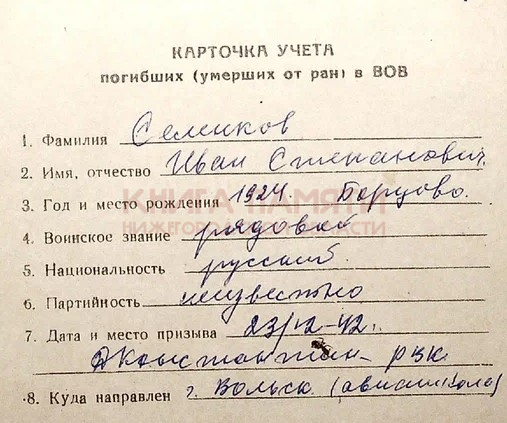 КАРТОЧКА УЧЕТА
погибших (умерших от ран) в ВОВ
1. Фамилия Семиков
2. Имя, отчество Иван Степанович
КНИГА ПАМЯТИ
3. Год и место рождения 1924. Борцово.
НИЖЕГОРОДСКОЙ ОБЛАСТИ
4. Воинское звание рядовой
5. Национальность русский
6. Партийность неизвестно
7. Дата и место призыва 23/12-42г.
РВК
8. Куда направлен г. Вольск (авиашкола)